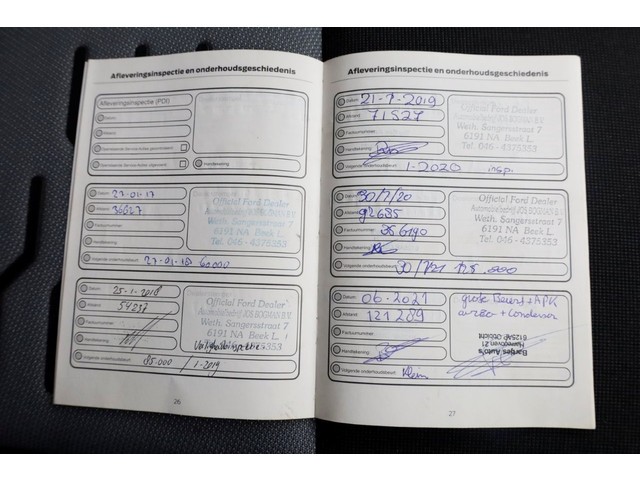 Afleveringsinspectie en onderhoudsgeschiedenis
Afleveringsinspectie (PDI)
Datum
Afstand
Handtekening
Datum 27-01-17
Afstand 36627
Factuurnummer
Handtekening
Volgende onderhoudsbeurt 27-01-18 60000
Official Ford Dealer
Automobielbedrijf JOS BOGMAN B.V.
Weth. Sangersstraat 7
6191 NA Beek L.
Tel. 046 - 4375353
Datum 25-1-2018
Afstand 54237
Factuurnummer
Handtekening
Volgende onderhoudsbeurt 85.000 / 1-2019
Official Ford Dealer
Automobielbedrijf JOS BOGMAN B.V.
Weth. Sangersstraat 7
6191 NA Beek L.
26
Afleveringsinspectie en onderhoudsgeschiedenis
Datum 21-7-2019
Afstand 71527
Factuurnummer
Handtekening
Volgende onderhoudsbeurt 1-2020 insp.
Official Ford Dealer
Automobielbedrijf JOS BOGMAN B.V.
Weth. Sangersstraat 7
6191 NA Beek L.
Tel. 046 - 4375353
Datum 30/7/20
Afstand 92685
Factuurnummer 356190
Handtekening
Volgende onderhoudsbeurt 30/7/21 125.000
Official Ford Dealer
Automobielbedrijf JOS BOGMAN B.V.
Weth. Sangersstraat 7
6191 NA Beek L.
Tel. 046 - 4375353
Datum 06-2021
Afstand 121289
Factuurnummer
Handtekening
Volgende onderhoudsbeurt
grote Beurt + APK
airco + Condensor
Bartjes Auto's
6125AP Obbicht
27